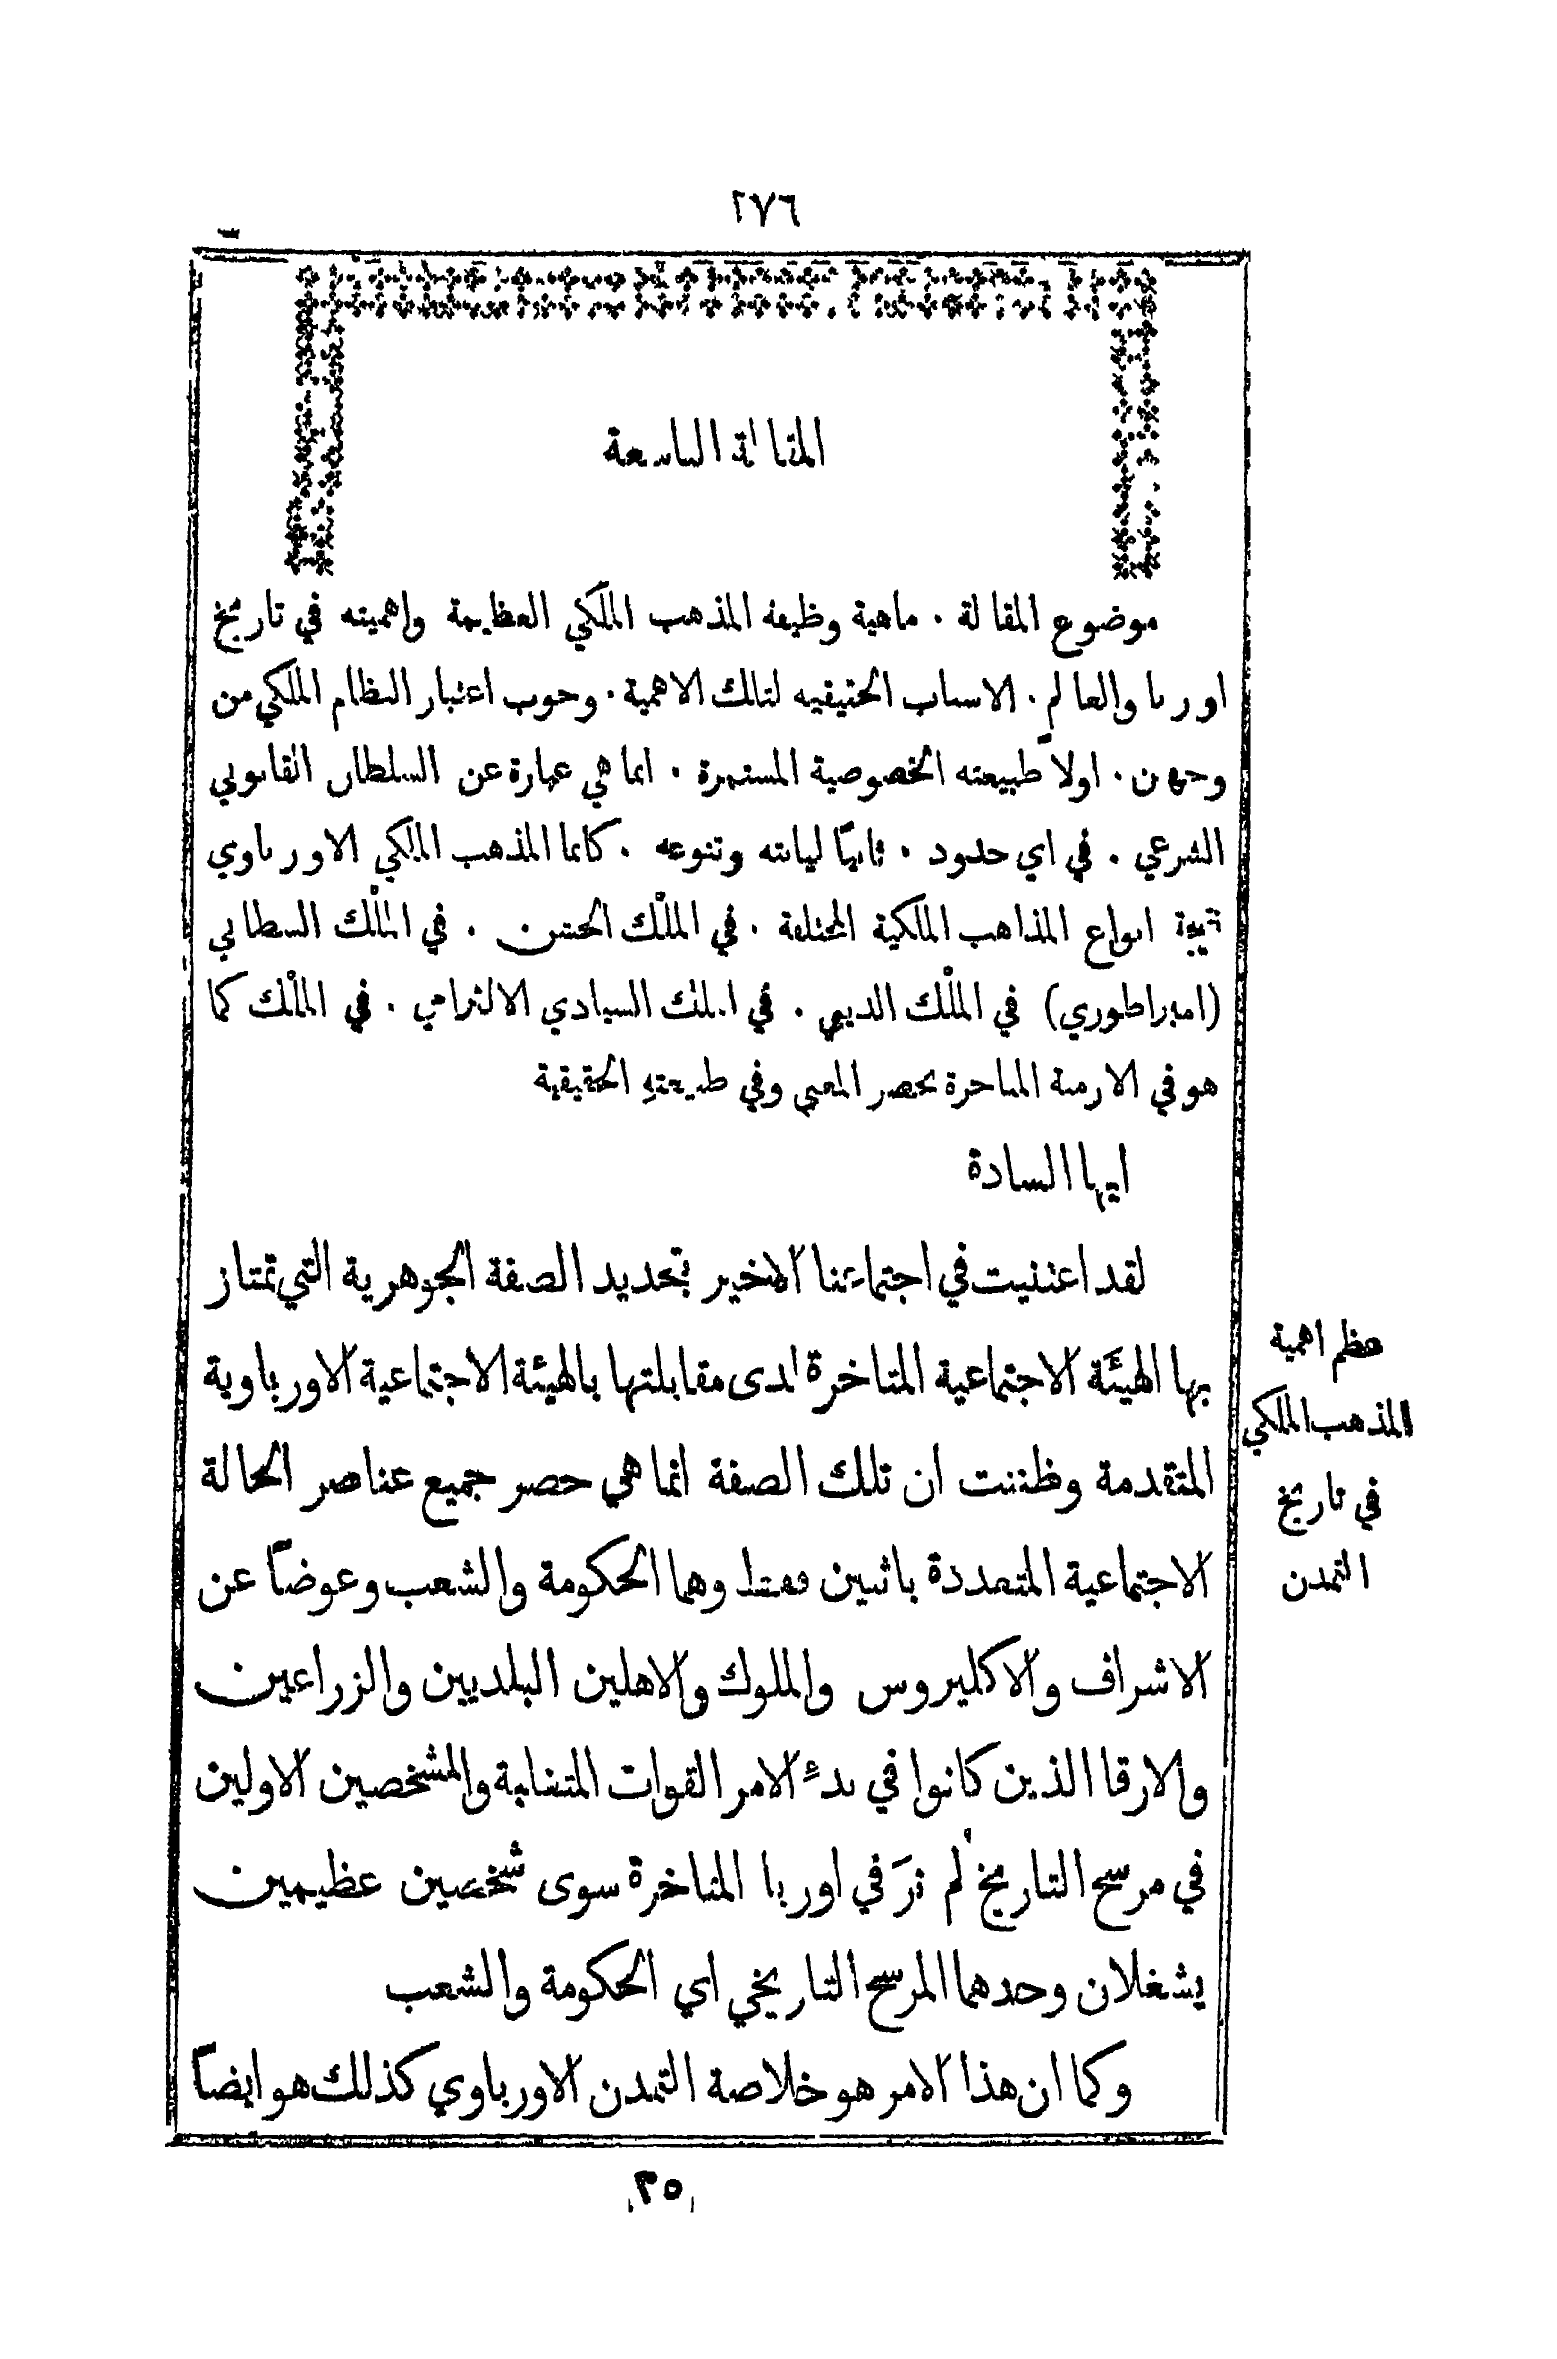 ٢٧٦
المقالة التاسعة
موضوع المقالة . ماهية وظيفة المذهب الملكي العظيمة واهميته في تاريخ
اوربا والعالم . الاسباب الحقيقية لتلك الاهمية . وجوب اعتبار النظام الملكي من
وجهين . اولاً طبيعته الخصوصية المستمرة . انما هي عبارة عن السلطان القانوني
الشرعي . في اي حدود . ثانياً ليانته وتنوعه . كانما المذهب الملكي الاورباوي
نتيجة انواع المذاهب الملكية المختلفة . في الملْك الخشن . في الملْك السلطاني
(امبراطوري) في الملْك الديني . في الملك السيادي الالتزامي . في الملْك كما
هو في الازمنة المتاخرة بحصر المعنى وفي طبيعتهِ الحقيقية
ايها السادة
لقد اعتنيت في اجتماعنا الاخير بتحديد الصفة الجوهرية التي تمتاز
بها الهيئَة الاجتماعية المتاخرة لدى مقابلتها بالهيئة الاجتماعية الاورباوية
المتقدمة وظننت ان تلك الصفة انما هي حصر جميع عناصر الحالة
الاجتماعية المتعددة باثنين فقط وهما الحكومة والشعب وعوضاً عن
الاشراف والاكليروس والملوك والاهلين البلديين والزراعين
والارقا الذين كانوا في بدءِ الامر القوات المتشابهة والمشخصين الاولين
في مرسح التاريخ لم نرَ في اوربا المتاخرة سوى شخصين عظيمين
يشغلان وحدهما المرسح التاريخي اي الحكومة والشعب
وكما ان هذا الامر هو خلاصة التمدن الاورباوي كذلك هو ايضاً
عظم اهمية
المذهب الملكي
في تاريخ
التمدن
٣٥